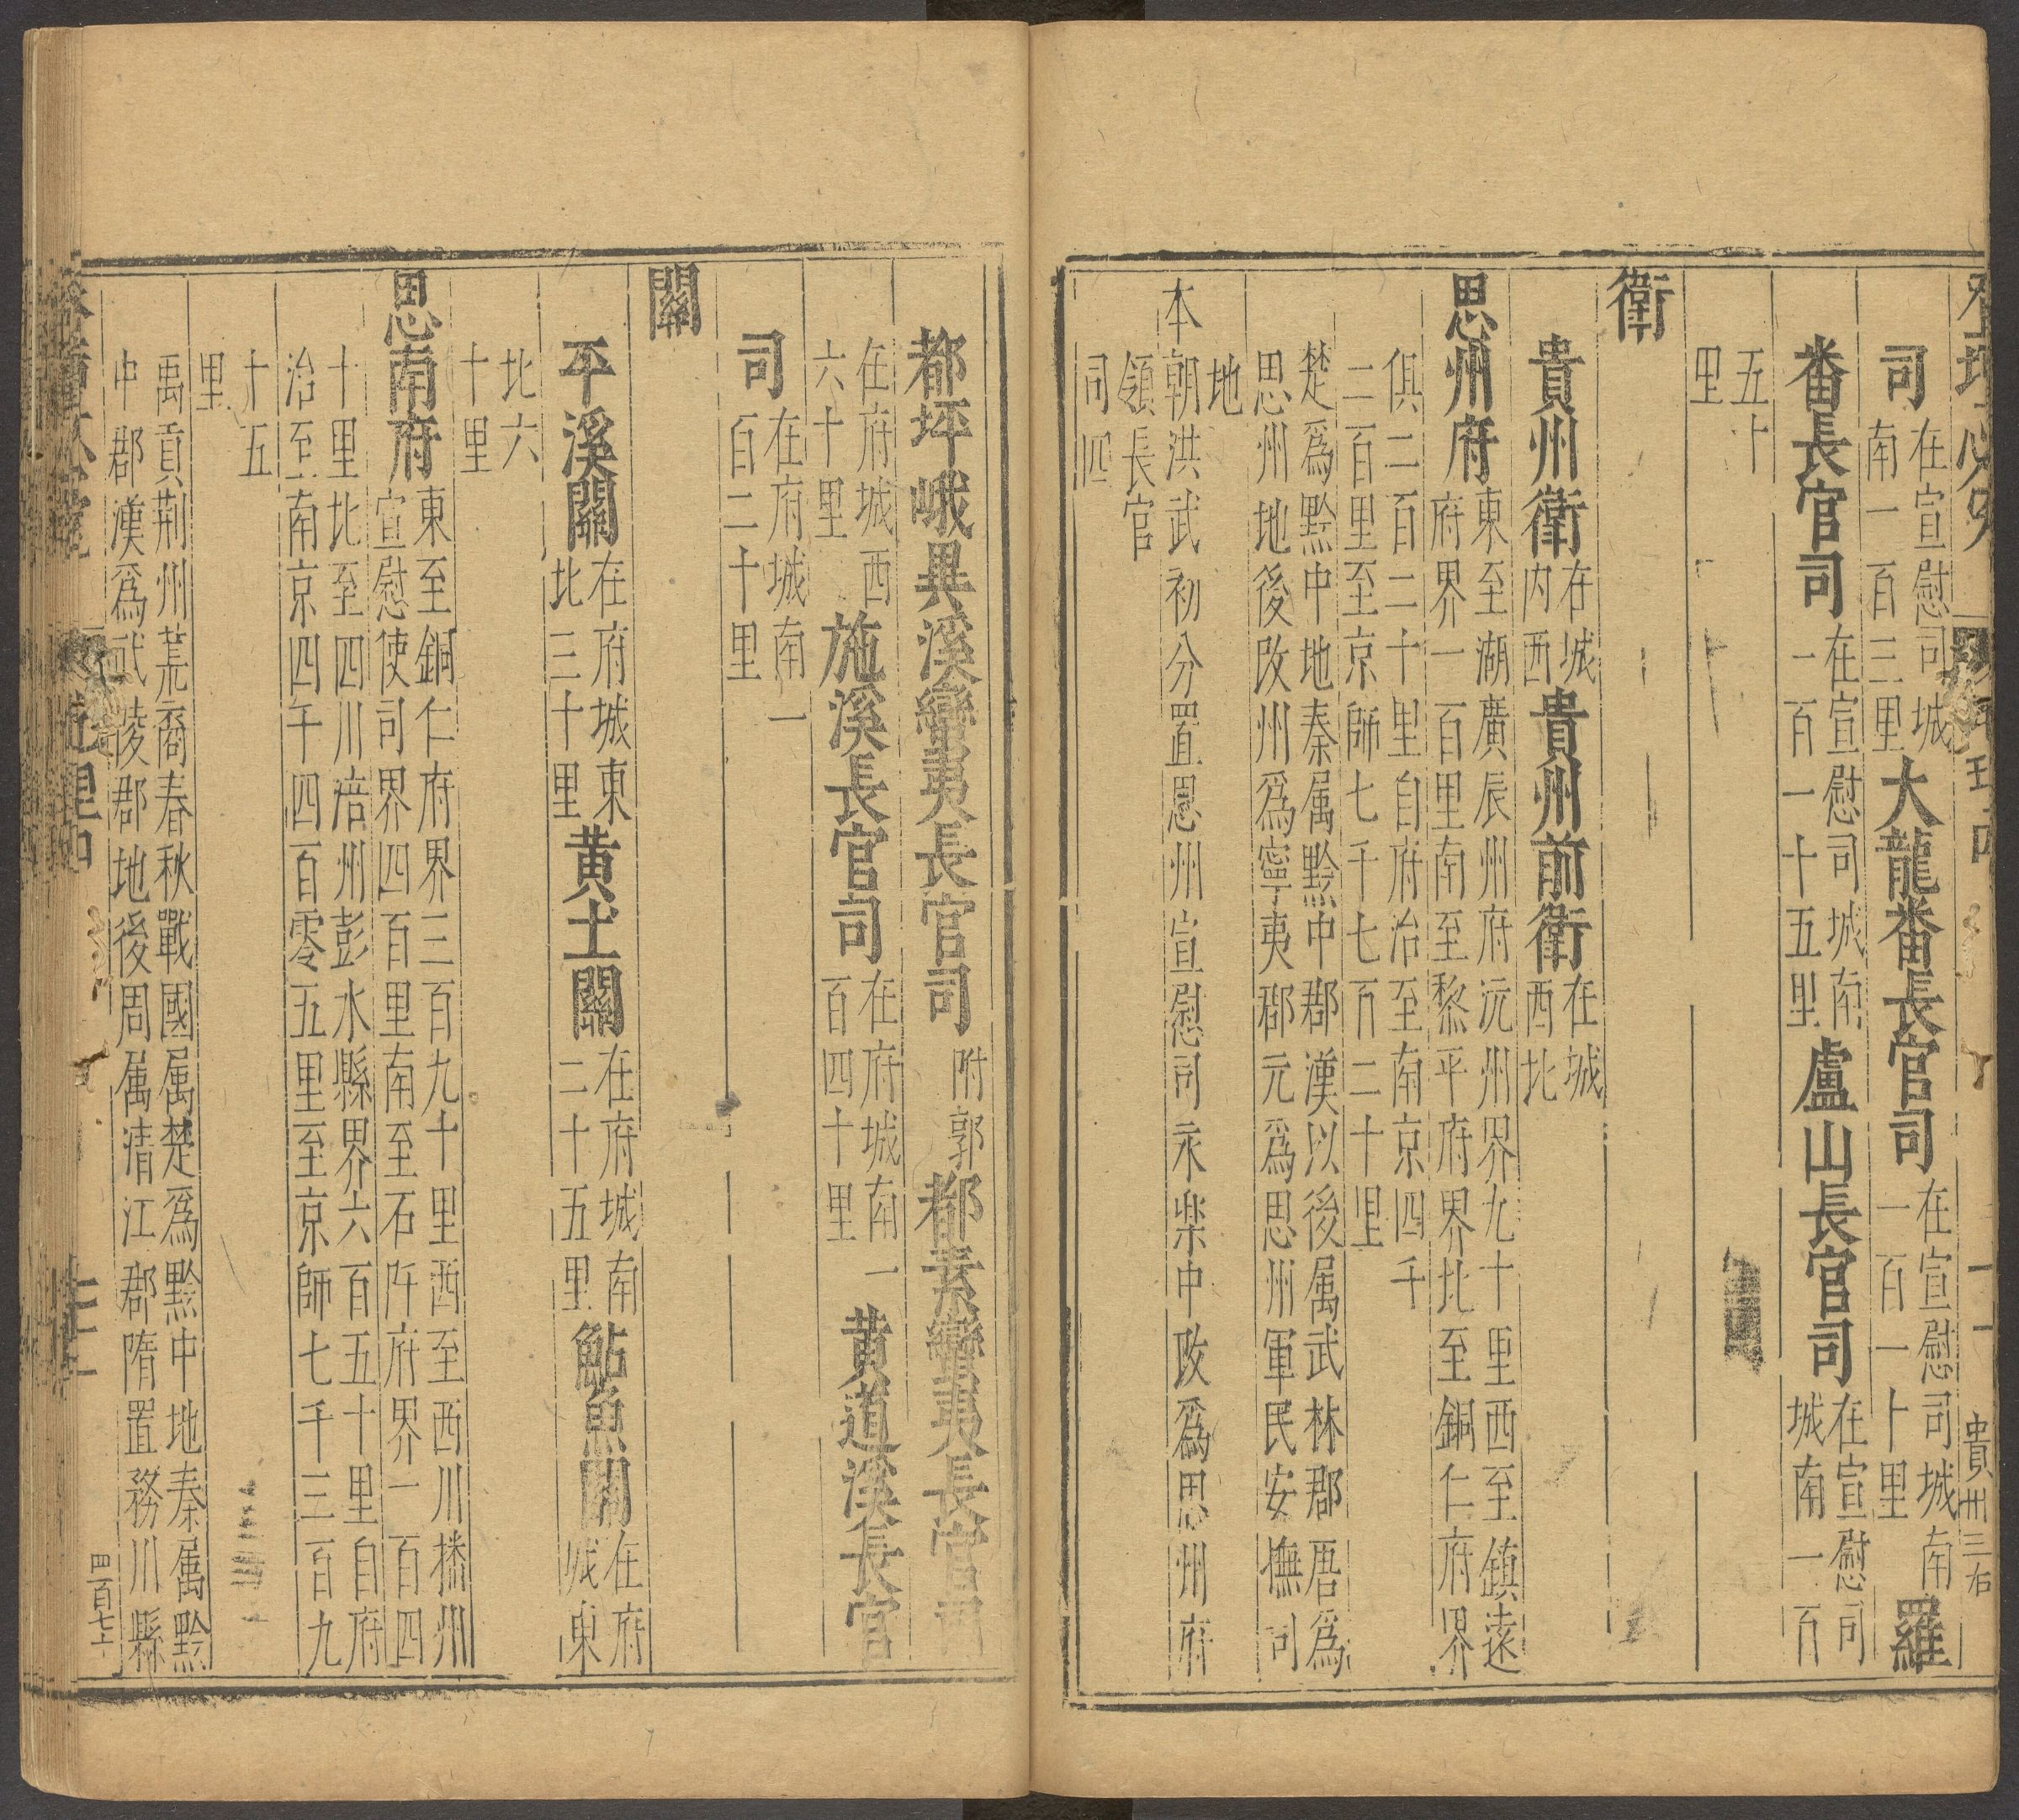 貴州三右
司在宣慰司城南一百三里大龍番長官司在宣慰司城南一百一十里羅
番長官司在宣慰司城南一百一十五里盧山長官司在宣慰司城南一百
五十里
衛
貴州衛在城内西貴州前衛在城西北
思州府東至湖廣辰州府沅州界九十里西至鎮遠府界一百里南至黎平府界北至銅仁府界
俱二百二十里自府治至南京四千二百里至京師七千七百二十里
楚爲黔中地秦属黔中郡漢以後属武林郡唐爲思州地後改州爲寧夷郡元爲思州軍民安撫司
地
本朝洪武初分置思州宣慰司永樂中改爲思州府
領長官司四
都坪峨異溪蠻夷長官司附郭都素蠻夷長官司
在府城西六十里施溪長官司在府城南一百四十里黄道溪長官
司在府城南一百二十里
關
平溪關在府城東北三十里黄土關在府城南二十五里鮎魚關在府城東
北六十里
思南府東至銅仁府界三百九十里西至西川播州宣慰使司界四百里南至石阡府界一百四
十里北至四川涪州彭水縣界六百五十里自府治至南京四千四百零五里至京師七千三百九
十五里
禹貢荆州荒裔春秋戰國属楚爲黔中地秦属黔中郡漢爲武陵郡地後周属清江郡隋置務川縣
四百七十